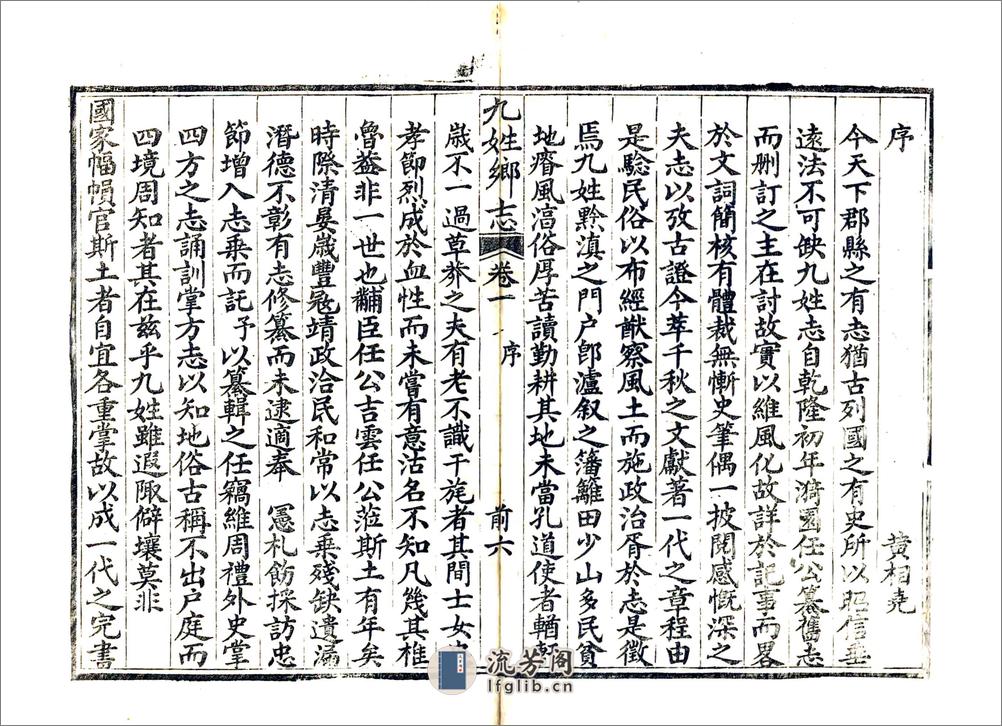 序
黄相堯
今天下郡縣之有志猶古列國之有史所以昭信垂
遠法不可缺九姓志自乾隆初年漪園任公纂舊志
而刪訂之主在討故實以維風化故詳於記事而畧
於文詞簡核有體裁無慚史筆偶一披閱感慨深之
夫志以攷古證今萃千秋之文獻著一代之章程由
是驗民俗以布經猷察風土而施政治胥於志是徵
焉九姓黔滇之門户郎瀘叙之籓籬田少山多民貧
地瘠風淳俗厚苦讀勤耕其地未當孔道使者輶軒
九姓鄉志
卷一
序
前六
歲不一過草莽之夫有老不識干旄者其間士女
孝節烈成於血性而未嘗有意沽名不知凡幾其椎
魯益非一世也黼臣任公吉雲任公蒞斯土有年矣
時際清晏歲豐寇靖政洽民和常以志乘殘缺遺漏
潛德不彰有志修纂而未逮適奉 憲札飭採訪忠
節增入志乘而託予以纂輯之任竊維周禮外史掌
四方之志誦訓掌方志以知地俗古稱不出户庭而
四境周知者其在兹乎九姓雖遐陬僻壤莫非
國家幅幀官斯土者自宜各重掌故以成一代之完書
流芳阁
lfglib.cn